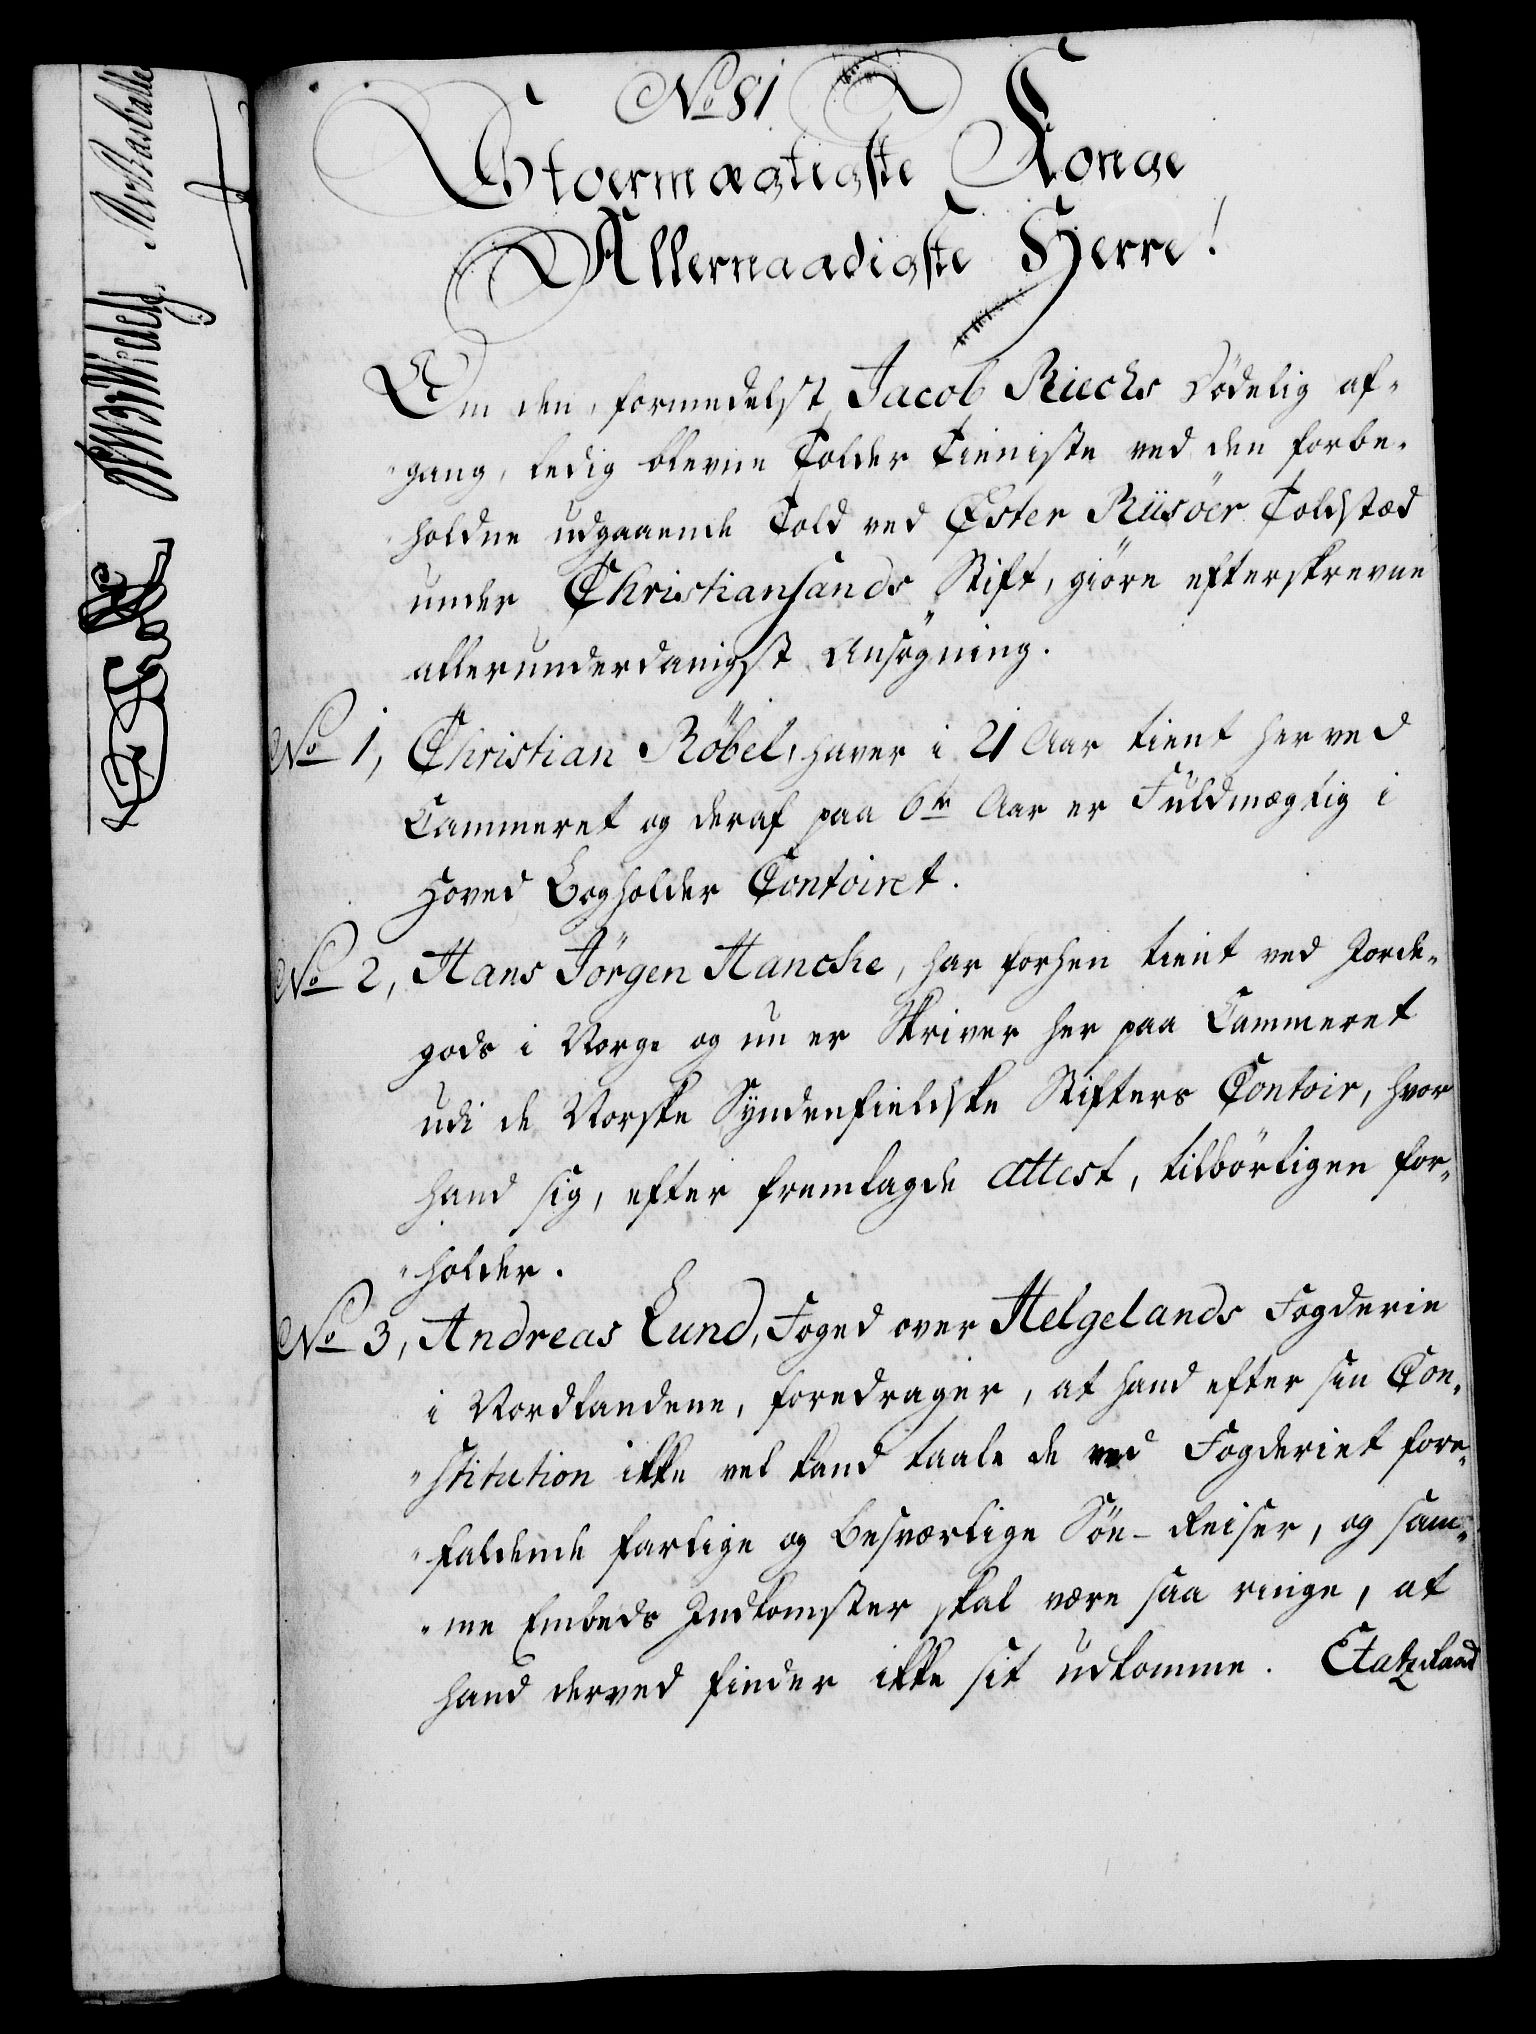 No 81
Stoermægtigste Konge
Allernaadigste Herre!
Om den, formedelst Jacob Riechs Dödelig af-
gang, ledig blevne Tolder Tieniste ved den forbe-
holdne udgaaende Told ved Öster Riisöer Toldstæd
under Christiansands Stift, giöre efterskrevne
allerunderdanigst Ansögning.
No 1, Christian Röbel, haver i 21 Aar tient her ved
Cammeret og deraf paa 6te Aar er Fuldmægtig i
Hoved Bogholder Contoiret.
No 2, Hans Jörgen Hancke, har forhen tient ved Jorde-
gods i Norge og nu er Skriver her paa Cammeret
udi de Norske Syndenfieldske Stifters Contoir, hvor
hand sig, efter fremlagde Attest, tilbörligen for-
holder.
No 3, Andreas Lund, Foged over Helgelands Fogderie
i Nordlandene, foredrager, at hand efter sin Con-
stitution ikke vel kand taale de ved Fogderiet fore-
faldende farlige og besværlige Söe-Reiser, og sam-
me Embeds Indkomster skal være saa ringe, at
hand derved finder ikke sit udkomme. Etatz